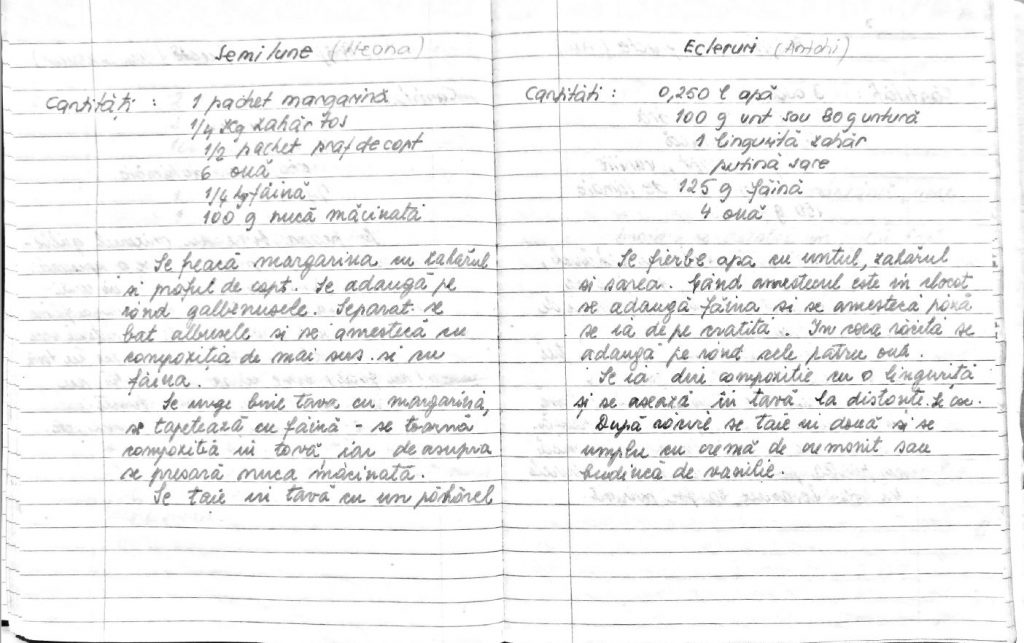 Semilune (Ileana)
Cantități : 1 pachet margarină
1/4 kg zahăr tos
1/2 pachet praf de copt
6 ouă
1/4 kg făină
100 g nucă măcinată
Se freacă margarina cu zahărul
si praful de copt. Se adaugă pe
rând galbenusele. Separat se
bat albusele si se amestecă cu
compoziția de mai sus si cu
făina.
Se unge bine tava cu margarină,
se tapetează cu făină - se toarnă
compozitia in tavă, iar deasupra
se presară nuca măcinată.
Se taie in tavă cu un păhărel
Ecleruri (Antohi)
Cantități : 0,250 l apă
100 g unt sau 80 g untură
1 linguriță zahăr
putină sare
125 g făină
4 ouă
Se fierbe apa cu untul, zahărul
si sarea. Când amestecul este in clocot
se adaugă făina si se amestecă până
se ia de pe cratita. In coca răcita se
adauga pe rând cele patru ouă.
Se ia din compozitie cu o linguriță
și se asează in tavă la distante. Se coc.
După răcire se taie in două si se
umplu cu cremă de cremsnit sau
budincă de vanilie.